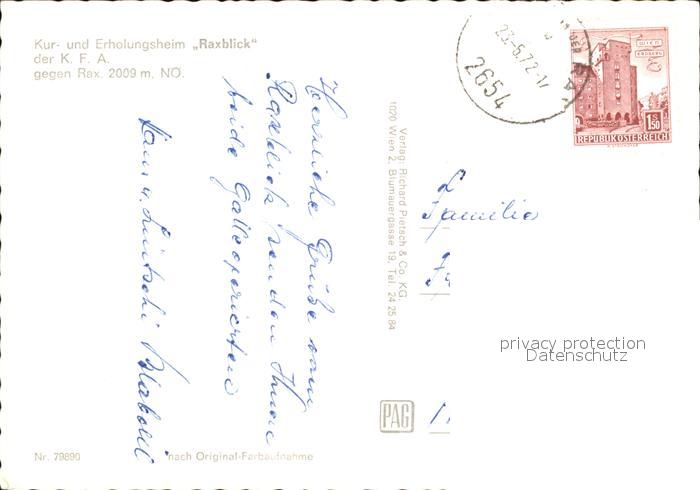 Kur- und Erholungsheim „Raxblick"
der K. F. A.
gegen Rax. 2009 m, NÖ.
Herrliche Grüße vom
Raxblick senden Ihnen
beide Galleoperierten
Hans u.
Verlag: Richard Pietsch & Co. KG.
1020 Wien 2, Blumauergasse 19, Tel. 24 25 84
23-5.72-17
2654
WIEN
ERDBERG
S
1.50
REPUBLIK ÖSTERREICH
Familie
privacy protection
Datenschutz
PAG
Nr. 79890
nach Original-Farbaufnahme